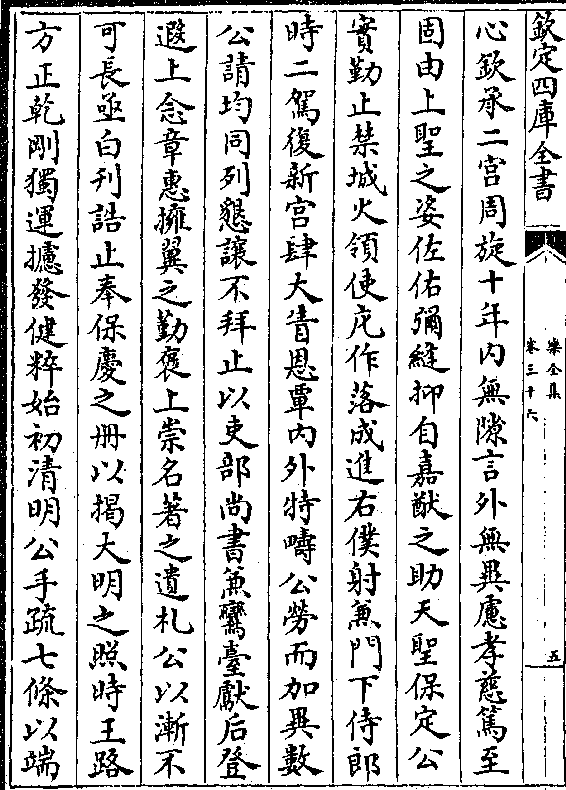 欽定四庫全書
樂全集
卷三十六
五
心欽承二宫周旋十年内無隙言外無異慮孝慈篤至
固由上聖之姿佐佑彌縫抑自嘉猷之助天聖保定公
實勤止禁城火領使庀作落成進右僕射兼門下侍郎
時二駕復新宫肆大眚恩覃内外特疇公勞而加異數
公請均同列懇讓不拜止以吏部尚書兼鸞臺獻后登
遐上念章惠擁翼之勤褒上崇名著之遺札公以漸不
可長亟白刋誥止奉保慶之冊以揭大明之照時王路
方正乾剛獨運攄發健粹始初清明公手疏七條以端